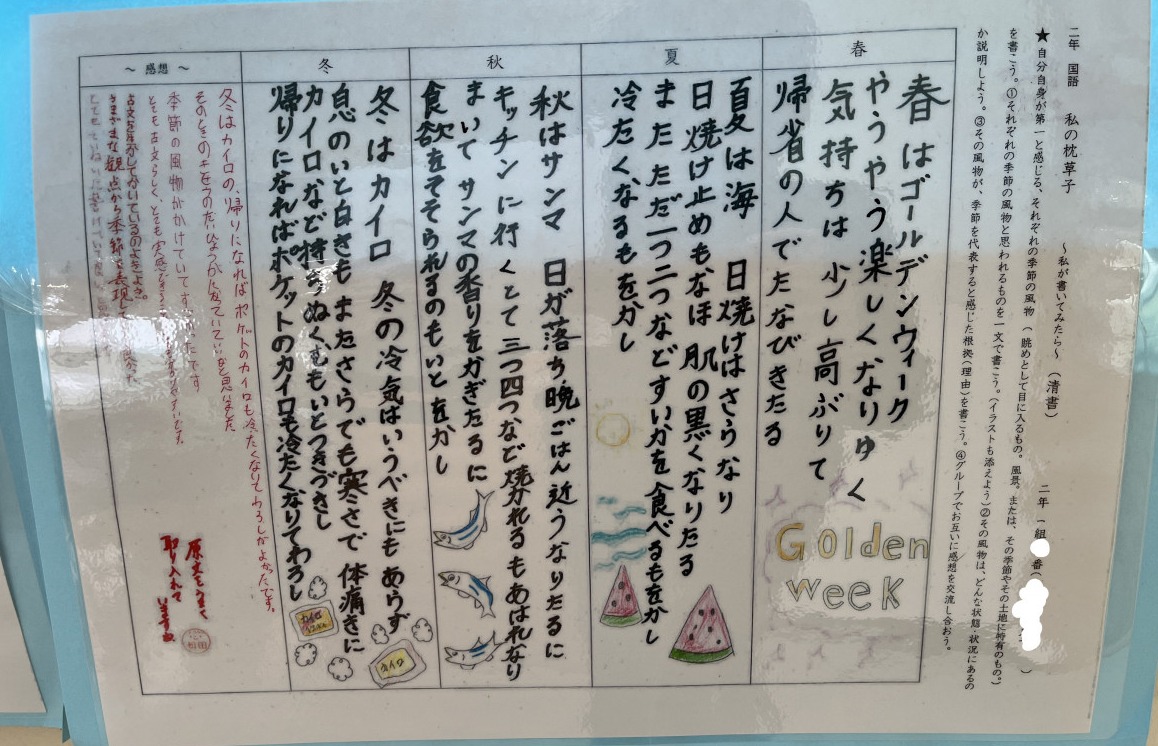 二年 国語 私の枕草子 ~私が書いてみたら~ (清書)
二年 一組 番( )
★自分自身が第一と感じる、それぞれの季節の風物(眺めとして目に入るもの。風景。または、その季節やその土地に特有のもの。)
を書こう。①それぞれの季節の風物と思われるものを一文で書こう。(イラストも添えよう)②その風物は、どんな状態・状況にあるの
か説明しよう。③その風物が、季節を代表すると感じた根拠(理由)を書こう。④グループでお互いに感想を交流し合おう。
春
春はゴールデンウィーク
やうやう楽しくなりゆく
気持ちは 少し高ぶりて
帰省の人でたなびきたる
Golden
week
夏
夏は海 日焼けはさらなり
日焼け止めもなほ 肌の黒くなりたる
まただ一つ二つなどすいかを食べるもをかし
冷たくなるもをかし
秋
秋はサンマ 日が落ち晩ごはん近うなりたるに
キッチンに行くとて 三つ四つなど焼かれるもあはれなり
まいてサンマの香りをかぎたるに
食欲をそそられるのもいとをかし
冬
冬はカイロ 冬の冷気はいうべきにもあらず
息のいと白きも またさらでも寒さで体痛きに
カイロなど持ち ぬくもいとつきづきし
帰りになればポケットのカイロも冷たくなりてわろし
カイロ
カイロ
~ 感想 ~
冬はカイロの、帰りになればポケットのカイロも冷たくなりてわろしがよかったです。
季節の風物がかけていて
とても古文らしく、とても実感
さまざまな観点から季節を表現して
原文をうまく
取り入れて
いますね